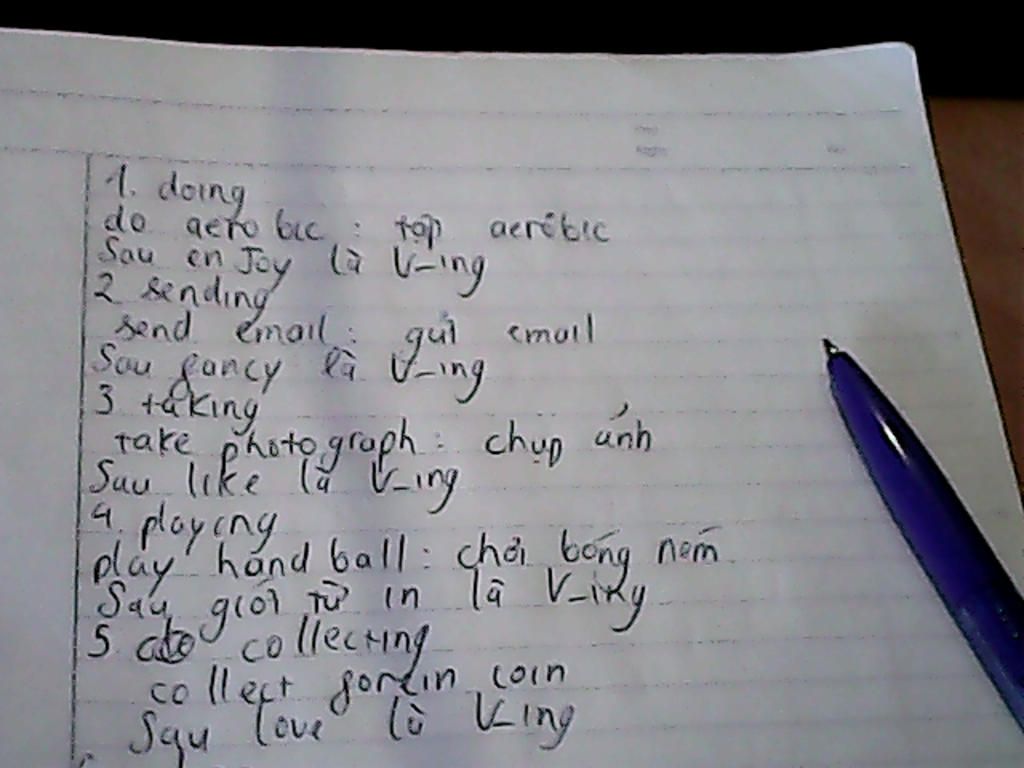 1. doing
do aerobic : tập aerobic
Sau enJoy là V-ing
2 sending
send email : gửi email
Sau fancy là V-ing
3 taking
take photograph : chụp ảnh
Sau like là V-ing
4. playing
play hand ball : chơi bóng ném
Sau giới từ in là V-ing
5. collecting
collect coin
Sau love là V-ing